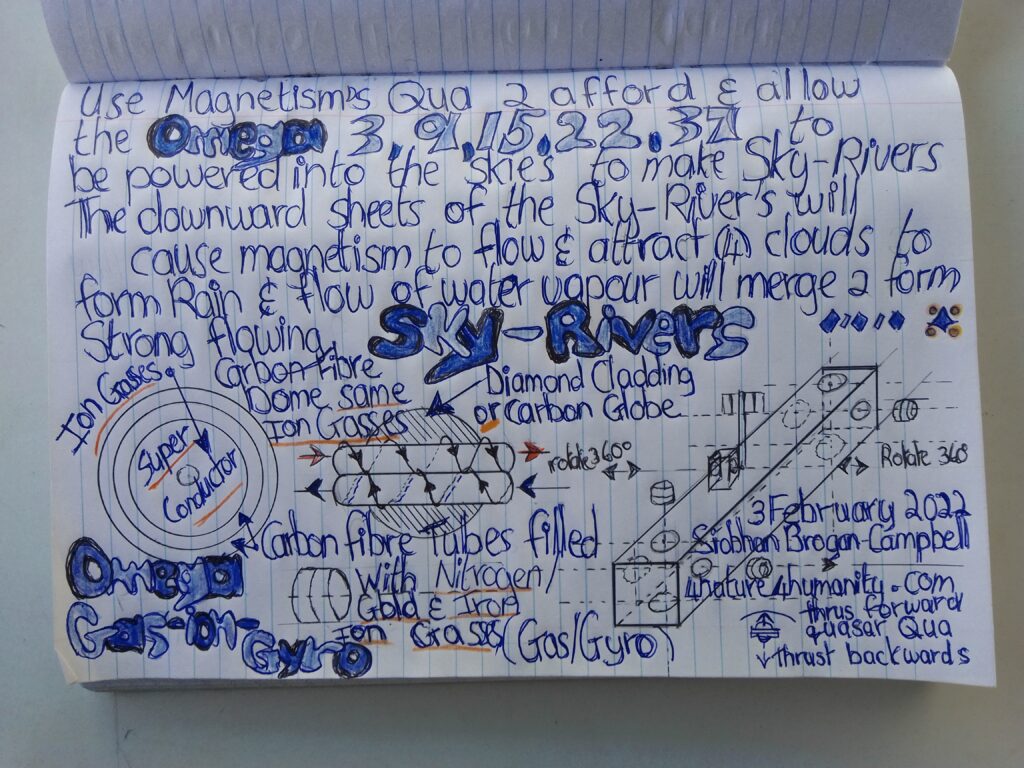 Use Magnetism's Qua 2 afford & allow
the Omega 3.9.15.22.37 to
be powered into the skies to make Sky-Rivers
The downward sheets of the Sky-River's will
cause magnetism to flow & attract (4) clouds to
form Rain & flow of water vapour will merge 2 form
Strong flowing Sky-Rivers
Ion Gasses
Super
Conductor
Carbon fibre
Dome same
Ion Gasses
Diamond Cladding
or Carbon Globe
rotate 360°
Rotate 360°
Carbon fibre Tubes filled
With Nitrogen/
Gold & Iron
Ion Gasses (Gas/Gyro)
Omega
Gas-ion-
Gyro
3 February 2022
Siobhan Brogan-Campbell
4nature4humanity.com
thrus forward
quasar Qua
thrust backwards